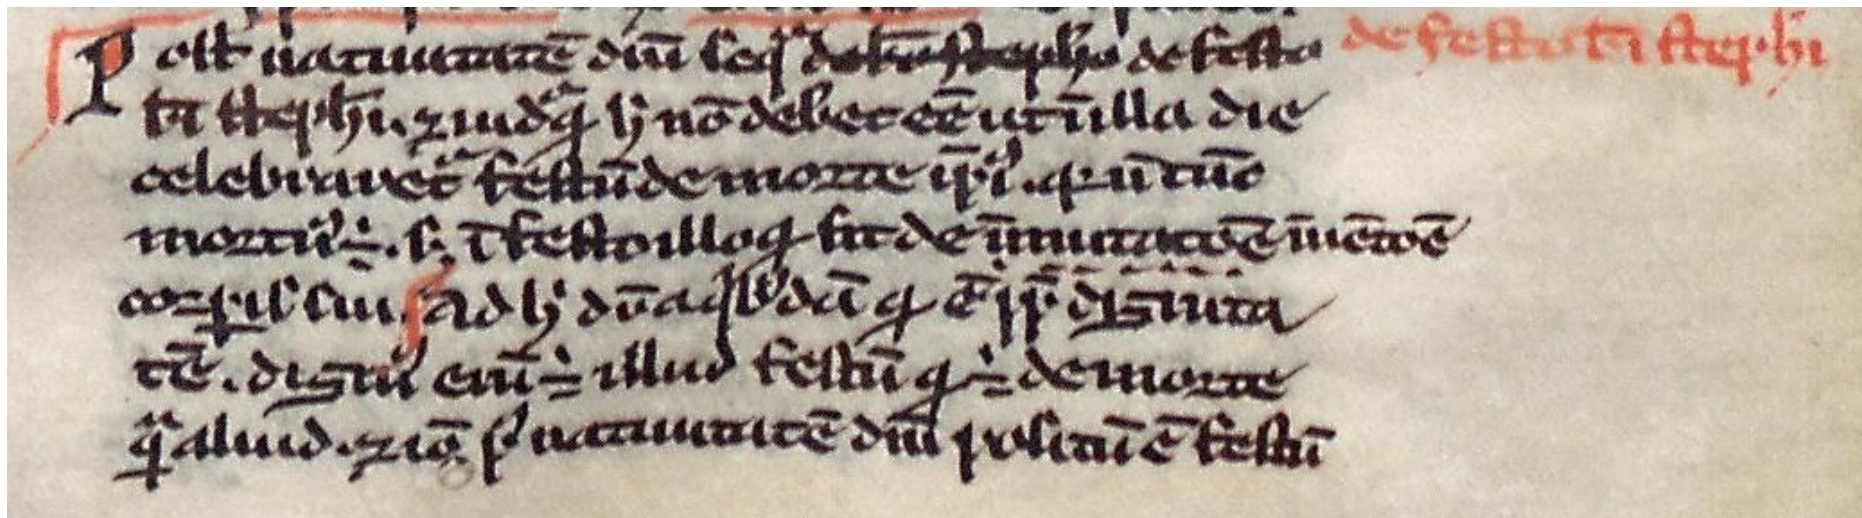 Post natiuitatē dn̄i seqͥ de bt̄o stepho de festo de festo bt̄i stephi
bt̄i steph̄i. ⁊ uidet̄ qd̄ h̓ nō debet eē ut n̄ illa die
celebraret᷑ festū de morte ip̄iꝰ. qꝛ n̄ tūc
mortuꝰ ÷. s; ī festo illo qd̄ fit de īuētōe
corꝑis sui Ad h̓ dn̄ a q̇bꝰdā qd̄ ē ꝓpt̄ dignita
tē. digniꝰ eni᷑ ÷ illud festū qd̄ ÷ de morte
qͣ aliud. ⁊ iō pꝰ natiuitatē dn̄i positū ē festū